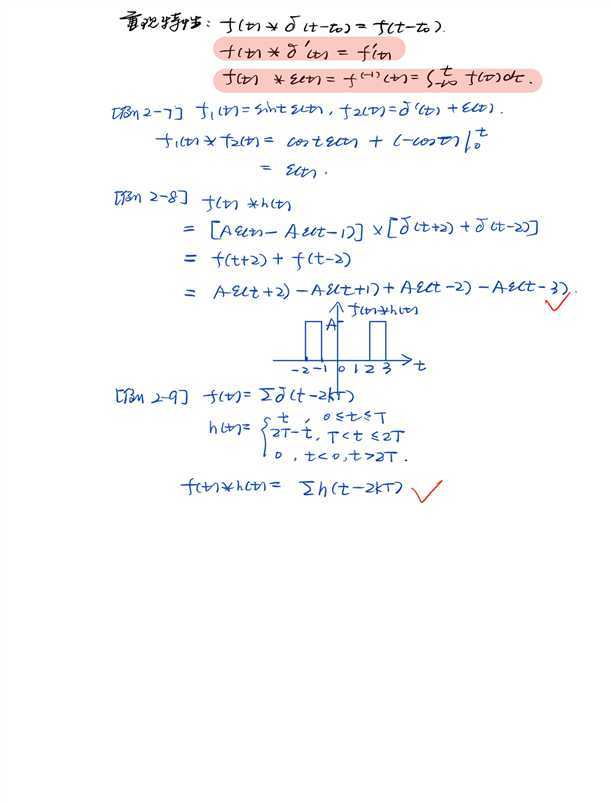 重现特性: f(t) * δ(t-t₀) = f(t-t₀).
f(t) * δ'(t) = f'(t)
f(t) * ε(t) = f⁽⁻¹⁾(t) = ∫_{-∞}^{t} f(t)dt.
[例2-7] f₁(t)=sint ε(t), f₂(t)=δ'(t)+ε(t).
f₁(t)*f₂(t) = cost ε(t) + (-cosτ)|₀ᵗ
= ε(t).
[例2-8] f(t)*h(t)
= [Aε(t) - Aε(t-1)] × [δ(t+2) + δ(t-2)]
= f(t+2) + f(t-2)
= Aε(t+2) - Aε(t+1) + Aε(t-2) - Aε(t-3).
f(t)*h(t)
A
-2 -1 0 1 2 3 t
[例2-9] f(t) = Σδ(t-2kT)
h(t) = { t, 0≤t≤T
2T-t, T<t≤2T
0, t<0, t>2T.
f(t)*h(t) = Σh(t-2kT)